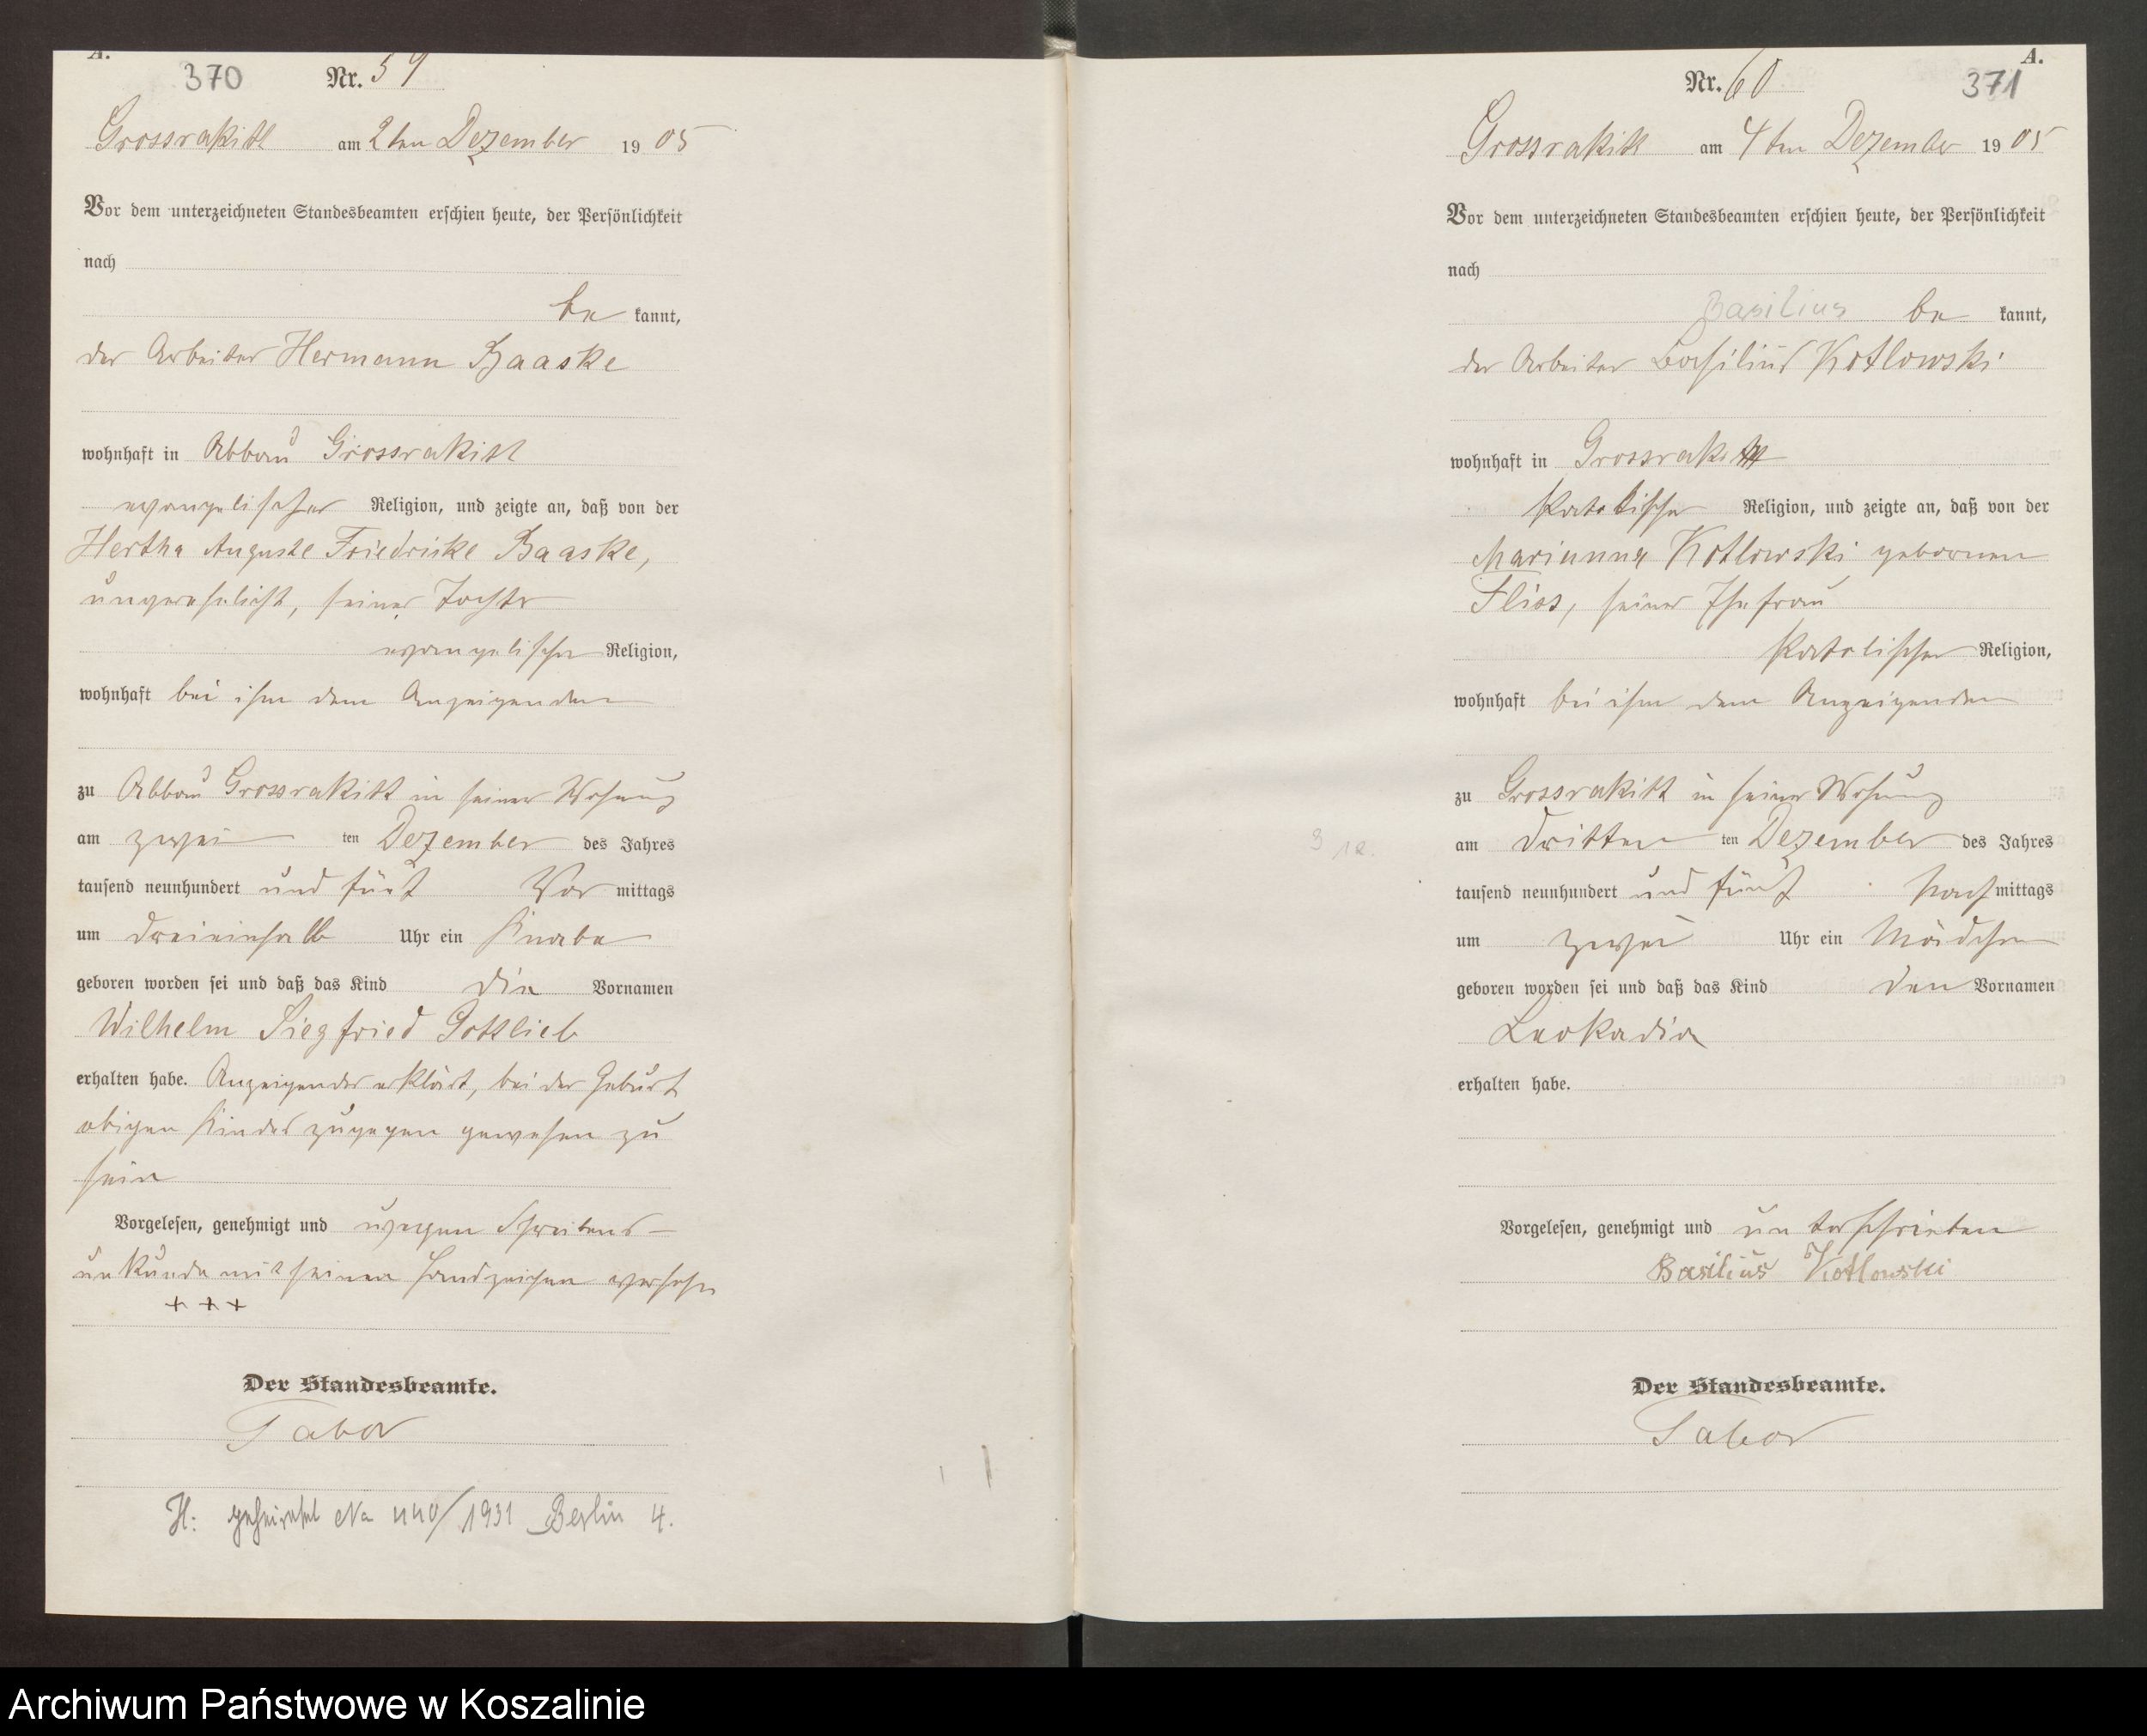 A.
370 Nr. 59
Grossrakitt am 2ten Dezember 1905
Vor dem unterzeichneten Standesbeamten erschien heute, der Persönlichkeit
nach
be kannt,
der Arbeiter Hermann Baaske
wohnhaft in Abbau Grossrakitt
evangelischer Religion, und zeigte an, daß von der
Hertha Auguste Friedricke Baaske,
unverehelicht, seiner Tochter
evangelischer Religion,
wohnhaft bei ihm dem Anzeigenden
zu Abbau Grossrakitt in seiner Wohnung
am zwei ten Dezember des Jahres
tausend neunhundert und fünf Vor mittags
um dreieinhalb Uhr ein Knabe
geboren worden sei und daß das Kind die Vornamen
Wilhelm Siegfried Gottlieb
erhalten habe. Anzeigender erklärt, bei der Geburt
obigen Kindes zugegen gewesen zu
sein
Vorgelesen, genehmigt und wegen Schreibens-
unkunde mit seinen Handzeichen versehen
+ + +
Der Standesbeamte.
Tabor
H: geheiratet No 440/1931 Berlin 4.
A.
Nr. 60 371
Grossrakitt am 4ten Dezember 1905
Vor dem unterzeichneten Standesbeamten erschien heute, der Persönlichkeit
nach
Basilius be kannt,
der Arbeiter Basilius Kotlowski
wohnhaft in Grossrakitt
katolischer Religion, und zeigte an, daß von der
Marianna Kotlowski gebornen
Flios, seiner Ehefrau
katolischer Religion,
wohnhaft bei ihm dem Anzeigenden
zu Grossrakitt in seiner Wohnung
3 12. am dritten ten Dezember des Jahres
tausend neunhundert und fünf Nach mittags
um zwei Uhr ein Mädchen
geboren worden sei und daß das Kind den Vornamen
Leokadia
erhalten habe.
Vorgelesen, genehmigt und unterschrieben
Basilius Kotlowski
Der Standesbeamte.
Tabor
Archiwum Państwowe w Koszalinie